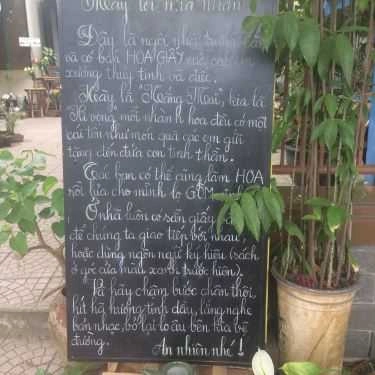 Hãy lời ... nhàm
Đây là ngôi nhà trưng bày
và có bán HOA GIẤY các
xưởng thủy tinh và điếc.
Hãy là "Hoàng Mai", bởi là
hi vọng mỗi nhành hoa đều có một
cái tôi như món quà các em gửi
tặng đến đứa con tinh thần.
Các bạn có thể cùng làm HOA
rồi lựa cho mình lọ GỐM
Ở nhà luôn có sẵn giấy
để chúng ta giao tiếp với nhau,
hoặc dùng ngôn ngữ ký hiệu (sách
ở góc cửa màu xanh trước hiên).
Và hãy chậm bước chân thôi,
hít hà hương tinh dầu, lắng nghe
bản nhạc, bỏ lại lo âu bên kia bờ
tường.
An nhiên nhé!